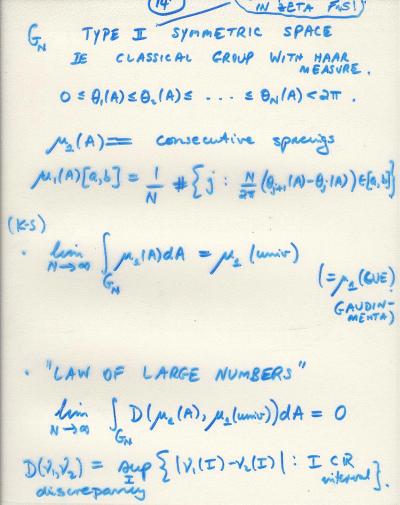 14
IN ZETA FNS!
G_N TYPE II SYMMETRIC SPACE
IE CLASSICAL GROUP WITH HAAR
MEASURE.
0 ≤ θ₁(A) ≤ θ₂(A) ≤ . . . ≤ θ_N(A) < 2π .
μ₁(A) = consecutive spacings
μ₁(A)[a,b] = 1/N #{ j : N/2π (θ_{j+1}(A) - θ_j(A)) ∈ [a,b] }
(K-S)
· lim_{N→∞} ∫_{G_N} μ₁(A)dA = μ₁(univ)
(= μ₁(GUE)
GAUDIN-
MEHTA)
· "LAW OF LARGE NUMBERS"
lim_{N→∞} ∫_{G_N} D(μ₁(A), μ₁(univ))dA = 0
D(ν₁,ν₂) = sup_I { |ν₁(I) - ν₂(I)| : I ⊂ ℝ interval }.
discrepancy